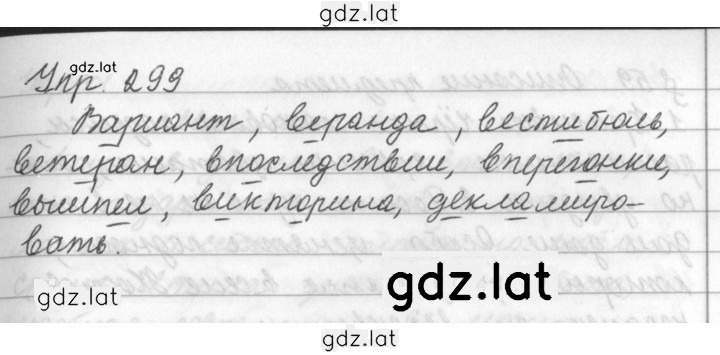 gdz.lat
gdz.lat
Упр. 299
Вариант, веранда, вестибюль,
ветеран, впоследствии, вперегонки,
вымпел, викторина, деклами­ро-
вать.
gdz.lat
gdz.lat
gdz.lat